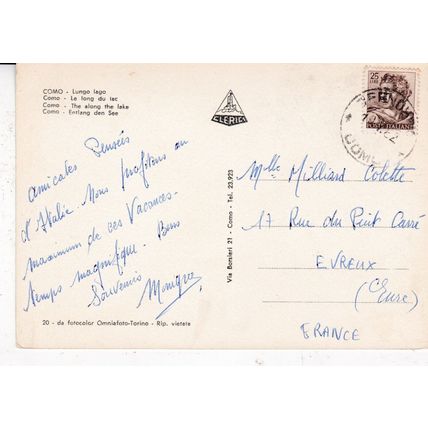 COMO - Lungo lago
Como - Le long du lac
Como - The along the lake
Como - Entlang den See
CLERICI
25
LIRE
POSTE ITALIANE
amicales Pensées
d'Italie. Nous profitons au
maximum de ces Vacances.
temps magnifique. Bons
Souvenirs Monique
Via Borsieri 21 - Como - Tel. 23.923
Melle Milliard Colette
17 Rue du Puit Carré
EVREUX
(Eure)
FRANCE
20 - da fotocolor Omniafoto-Torino - Rip. vietata